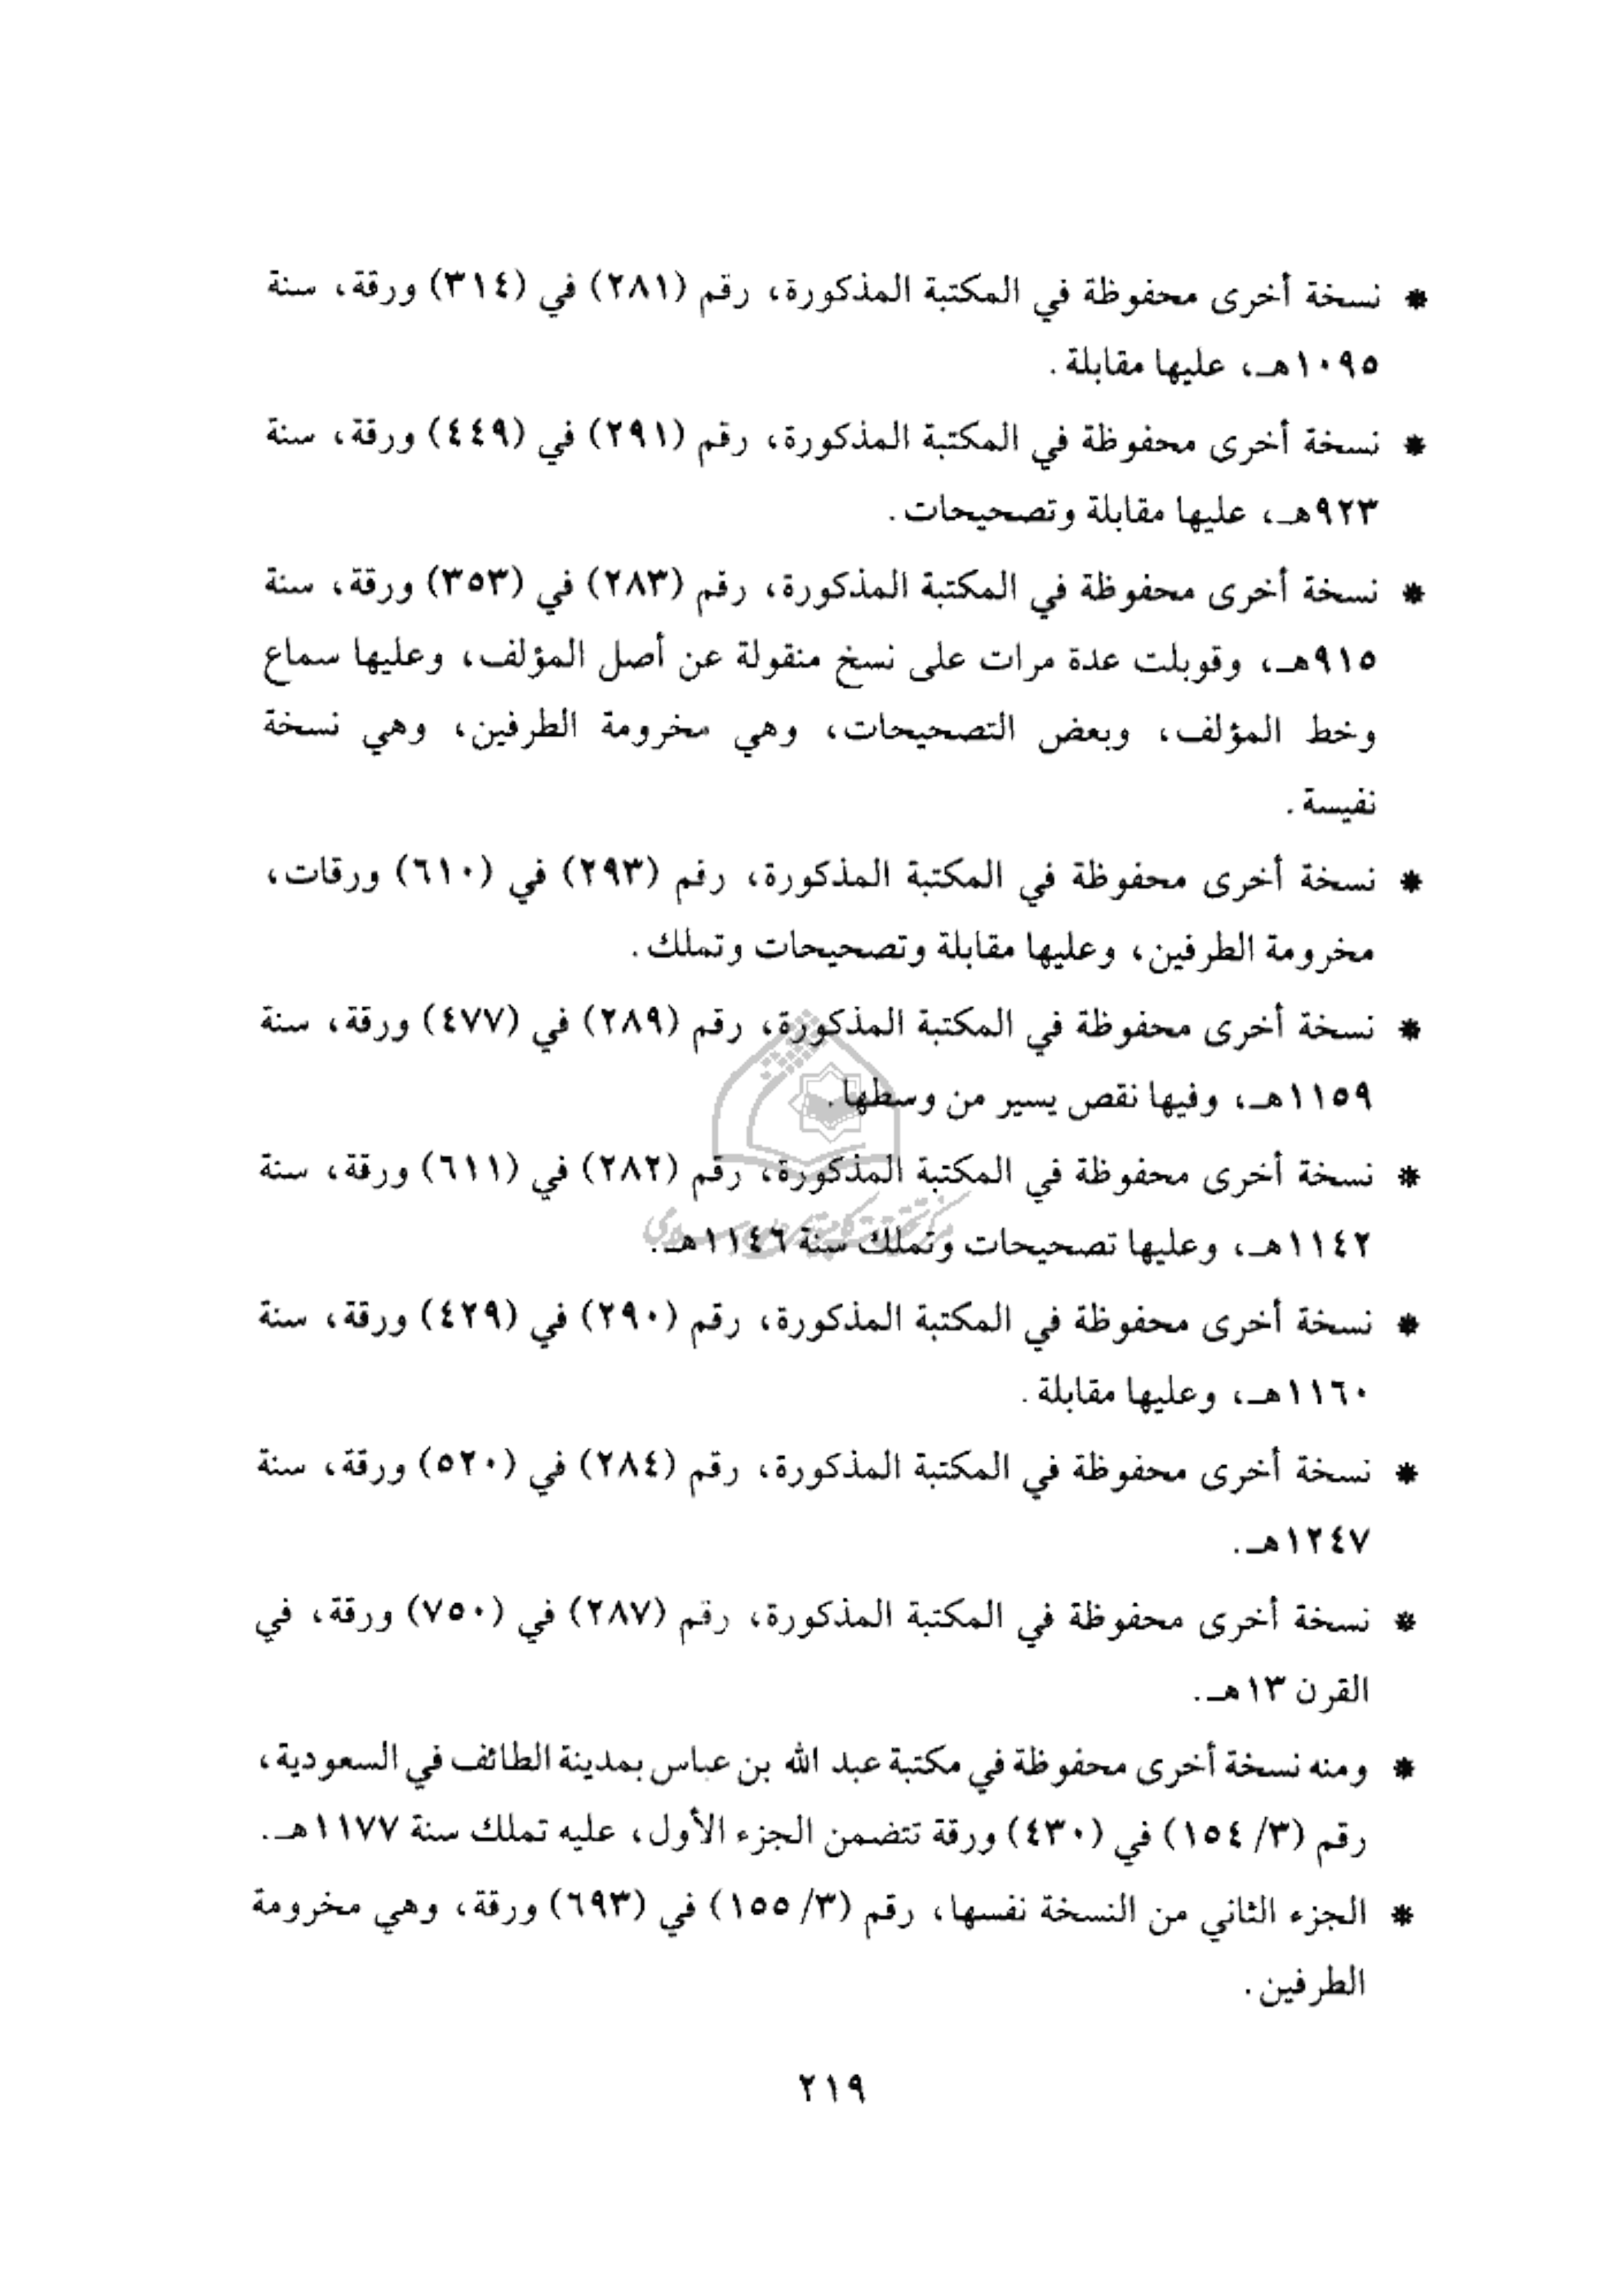 * نسخة أخرى محفوظة في المكتبة المذكورة، رقم (٢٨١) في (٣١٤) ورقة، سنة
١٠٩٥هـ، عليها مقابلة.
* نسخة أخرى محفوظة في المكتبة المذكورة، رقم (٢٩١) في (٤٤٩) ورقة، سنة
٩٢٣هـ، عليها مقابلة وتصحيحات.
* نسخة أخرى محفوظة في المكتبة المذكورة، رقم (٢٨٣) في (٣٥٣) ورقة، سنة
٩١٥هـ، وقوبلت عدة مرات على نسخ منقولة عن أصل المؤلف، وعليها سماع
وخط المؤلف، وبعض التصحيحات، وهي مخرومة الطرفين، وهي نسخة
نفيسة.
* نسخة أخرى محفوظة في المكتبة المذكورة، رقم (٢٩٣) في (٦١٠) ورقات،
مخرومة الطرفين، وعليها مقابلة وتصحيحات وتملك.
* نسخة أخرى محفوظة في المكتبة المذكورة، رقم (٢٨٩) في (٤٧٧) ورقة، سنة
١١٥٩هـ، وفيها نقص يسير من وسطها.
* نسخة أخرى محفوظة في المكتبة المذكورة، رقم (٢٨٢) في (٦١١) ورقة، سنة
١١٤٢هـ، وعليها تصحيحات وتملك سنة ١١٤٦هـ.
* نسخة أخرى محفوظة في المكتبة المذكورة، رقم (٢٩٠) في (٤٢٩) ورقة، سنة
١١٦٠هـ، وعليها مقابلة.
* نسخة أخرى محفوظة في المكتبة المذكورة، رقم (٢٨٤) في (٥٢٠) ورقة، سنة
١٢٤٧هـ.
* نسخة أخرى محفوظة في المكتبة المذكورة، رقم (٢٨٧) في (٧٥٠) ورقة، في
القرن ١٣هـ.
* ومنه نسخة أخرى محفوظة في مكتبة عبد الله بن عباس بمدينة الطائف في السعودية،
رقم (٣/ ١٥٤) في (٤٣٠) ورقة تتضمن الجزء الأول، عليه تملك سنة ١١٧٧هـ.
* الجزء الثاني من النسخة نفسها، رقم (٣/ ١٥٥) في (٦٩٣) ورقة، وهي مخرومة
الطرفين.
٢١٩